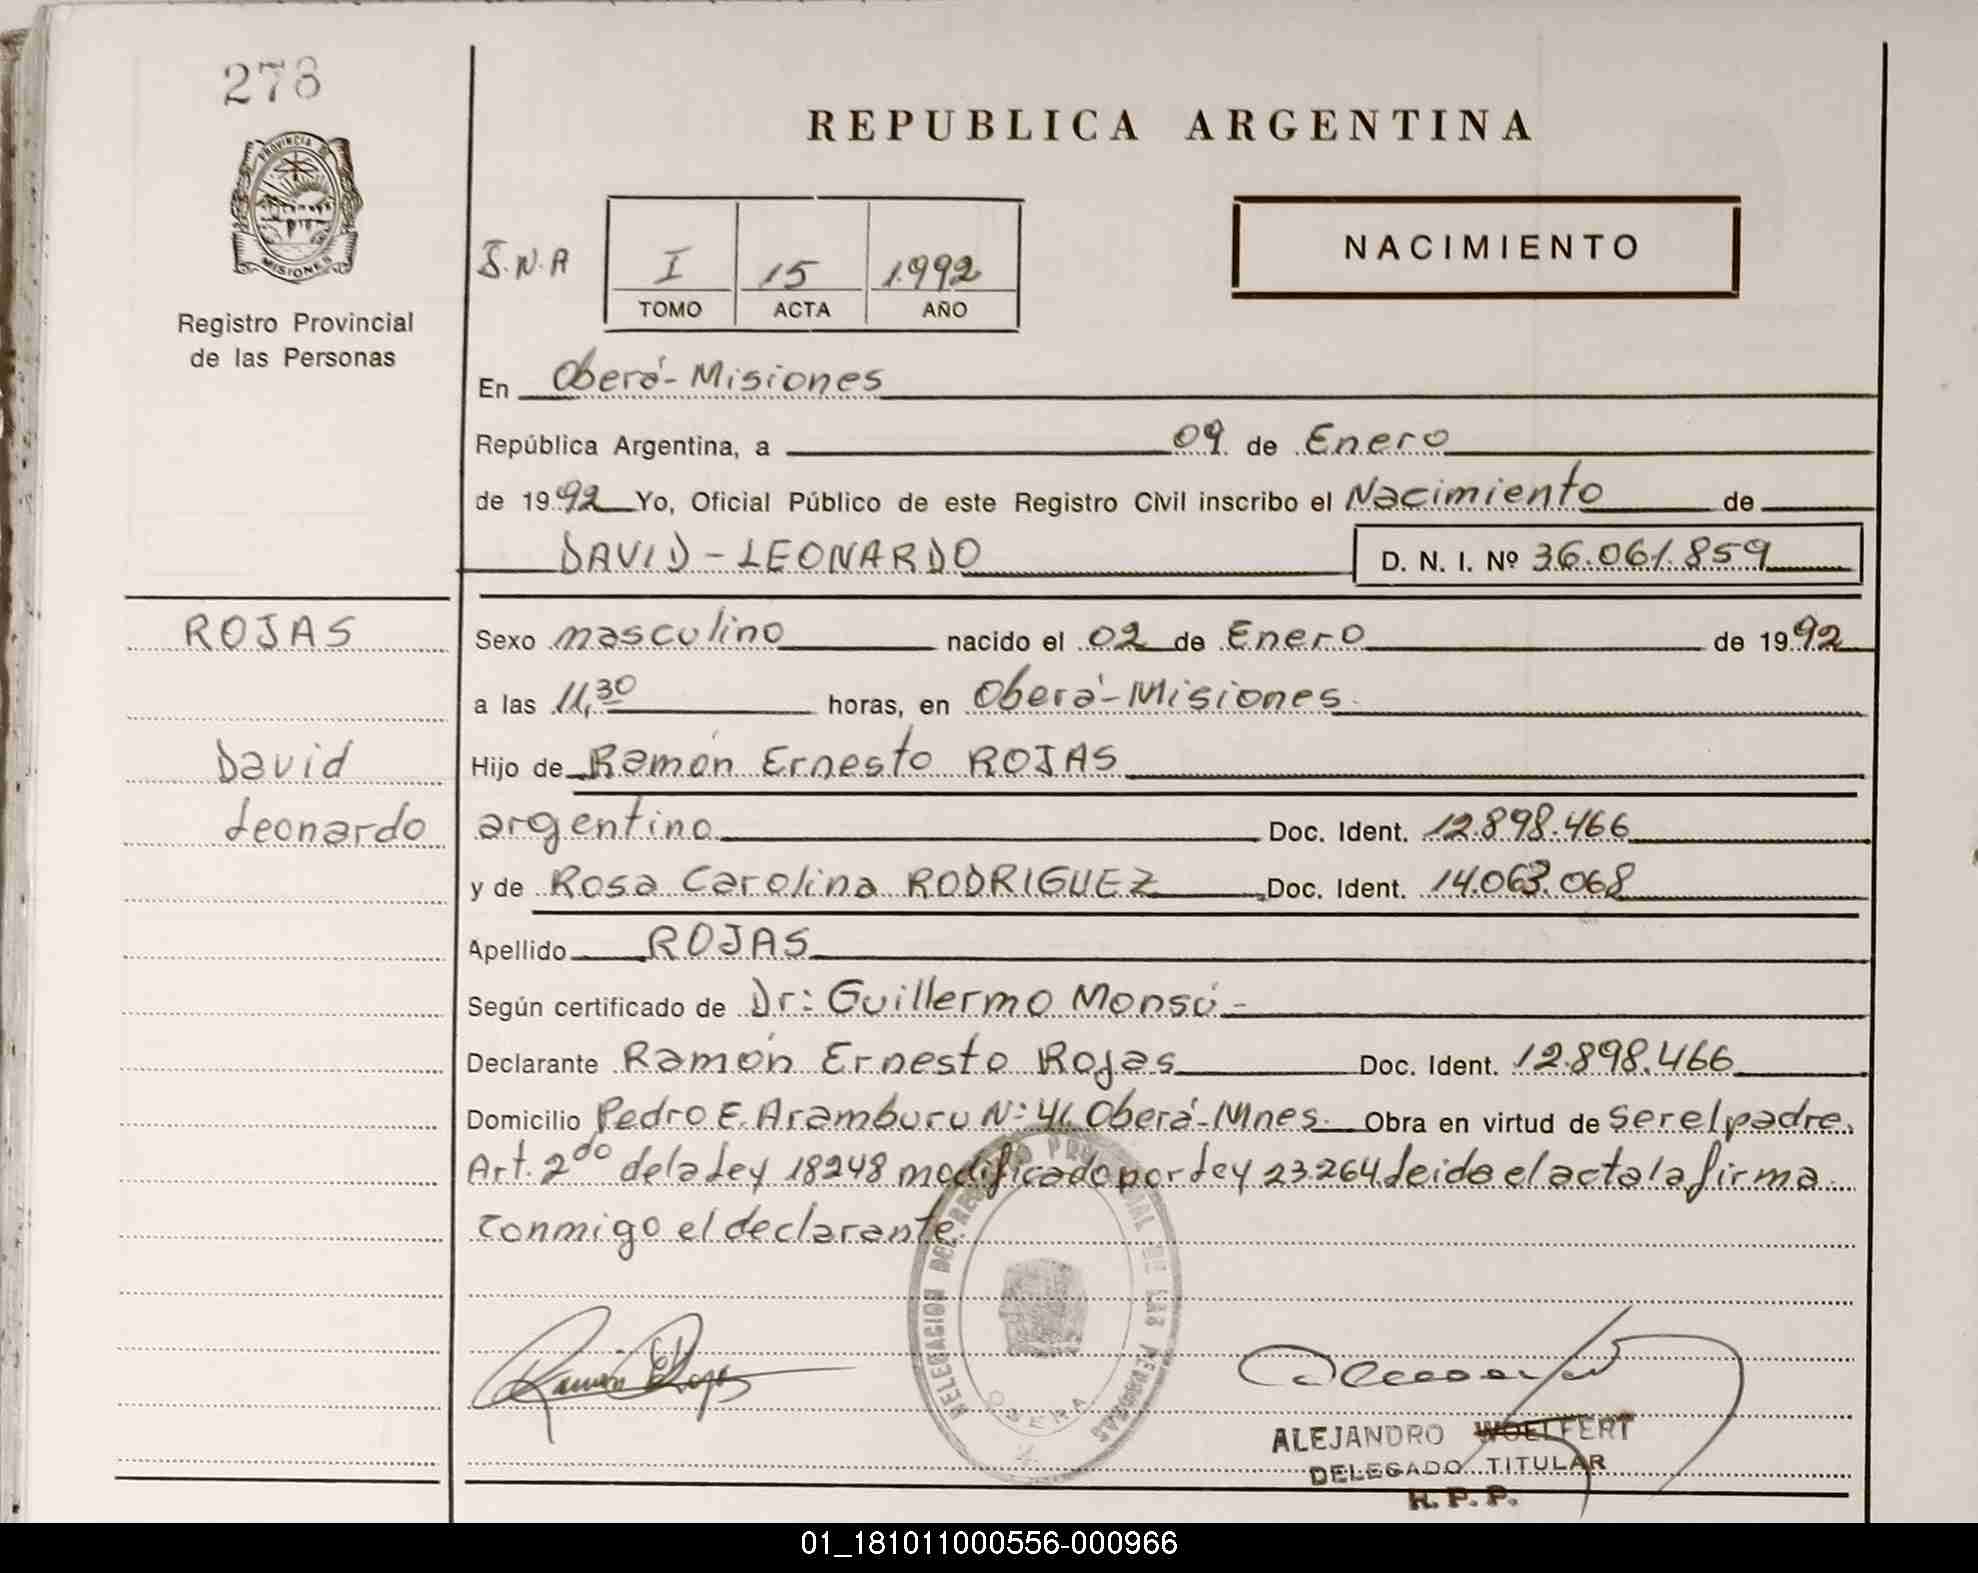 278
PROVINCIA DE
MISIONES
Registro Provincial
de las Personas
REPUBLICA ARGENTINA
NACIMIENTO
S.N.A
I 15 1.992
TOMO ACTA AÑO
En Oberá-Misiones
República Argentina, a 09 de Enero
de 1992 Yo, Oficial Público de este Registro Civil inscribo el Nacimiento de
DAVID-LEONARDO D. N. I. Nº 36.061.859
ROJAS
David
Leonardo
Sexo masculino nacido el 02 de Enero de 1992
a las 11,30 horas, en Oberá-Misiones.
Hijo de Ramón Ernesto ROJAS
argentino Doc. Ident. 12.898.466
y de Rosa Carolina RODRIGUEZ Doc. Ident. 14.063.068
Apellido ROJAS
Según certificado de Dr: Guillermo Monsú-
Declarante Ramón Ernesto Rojas Doc. Ident. 12.898.466
Domicilio Pedro E. Aramburu Nº 41. Oberá-Mnes. Obra en virtud de ser el padre.
Art. 2do de la Ley 18248 modificado por Ley 23.264 leida el acta la firma
conmigo el declarante.
DELEGACION DEL REGISTRO PROVINCIAL DE LAS PERSONAS
OBERA
Ramón E Rojas
ALEJANDRO WOELFERT
DELEGADO TITULAR
R. P. P.
01_181011000556-000966